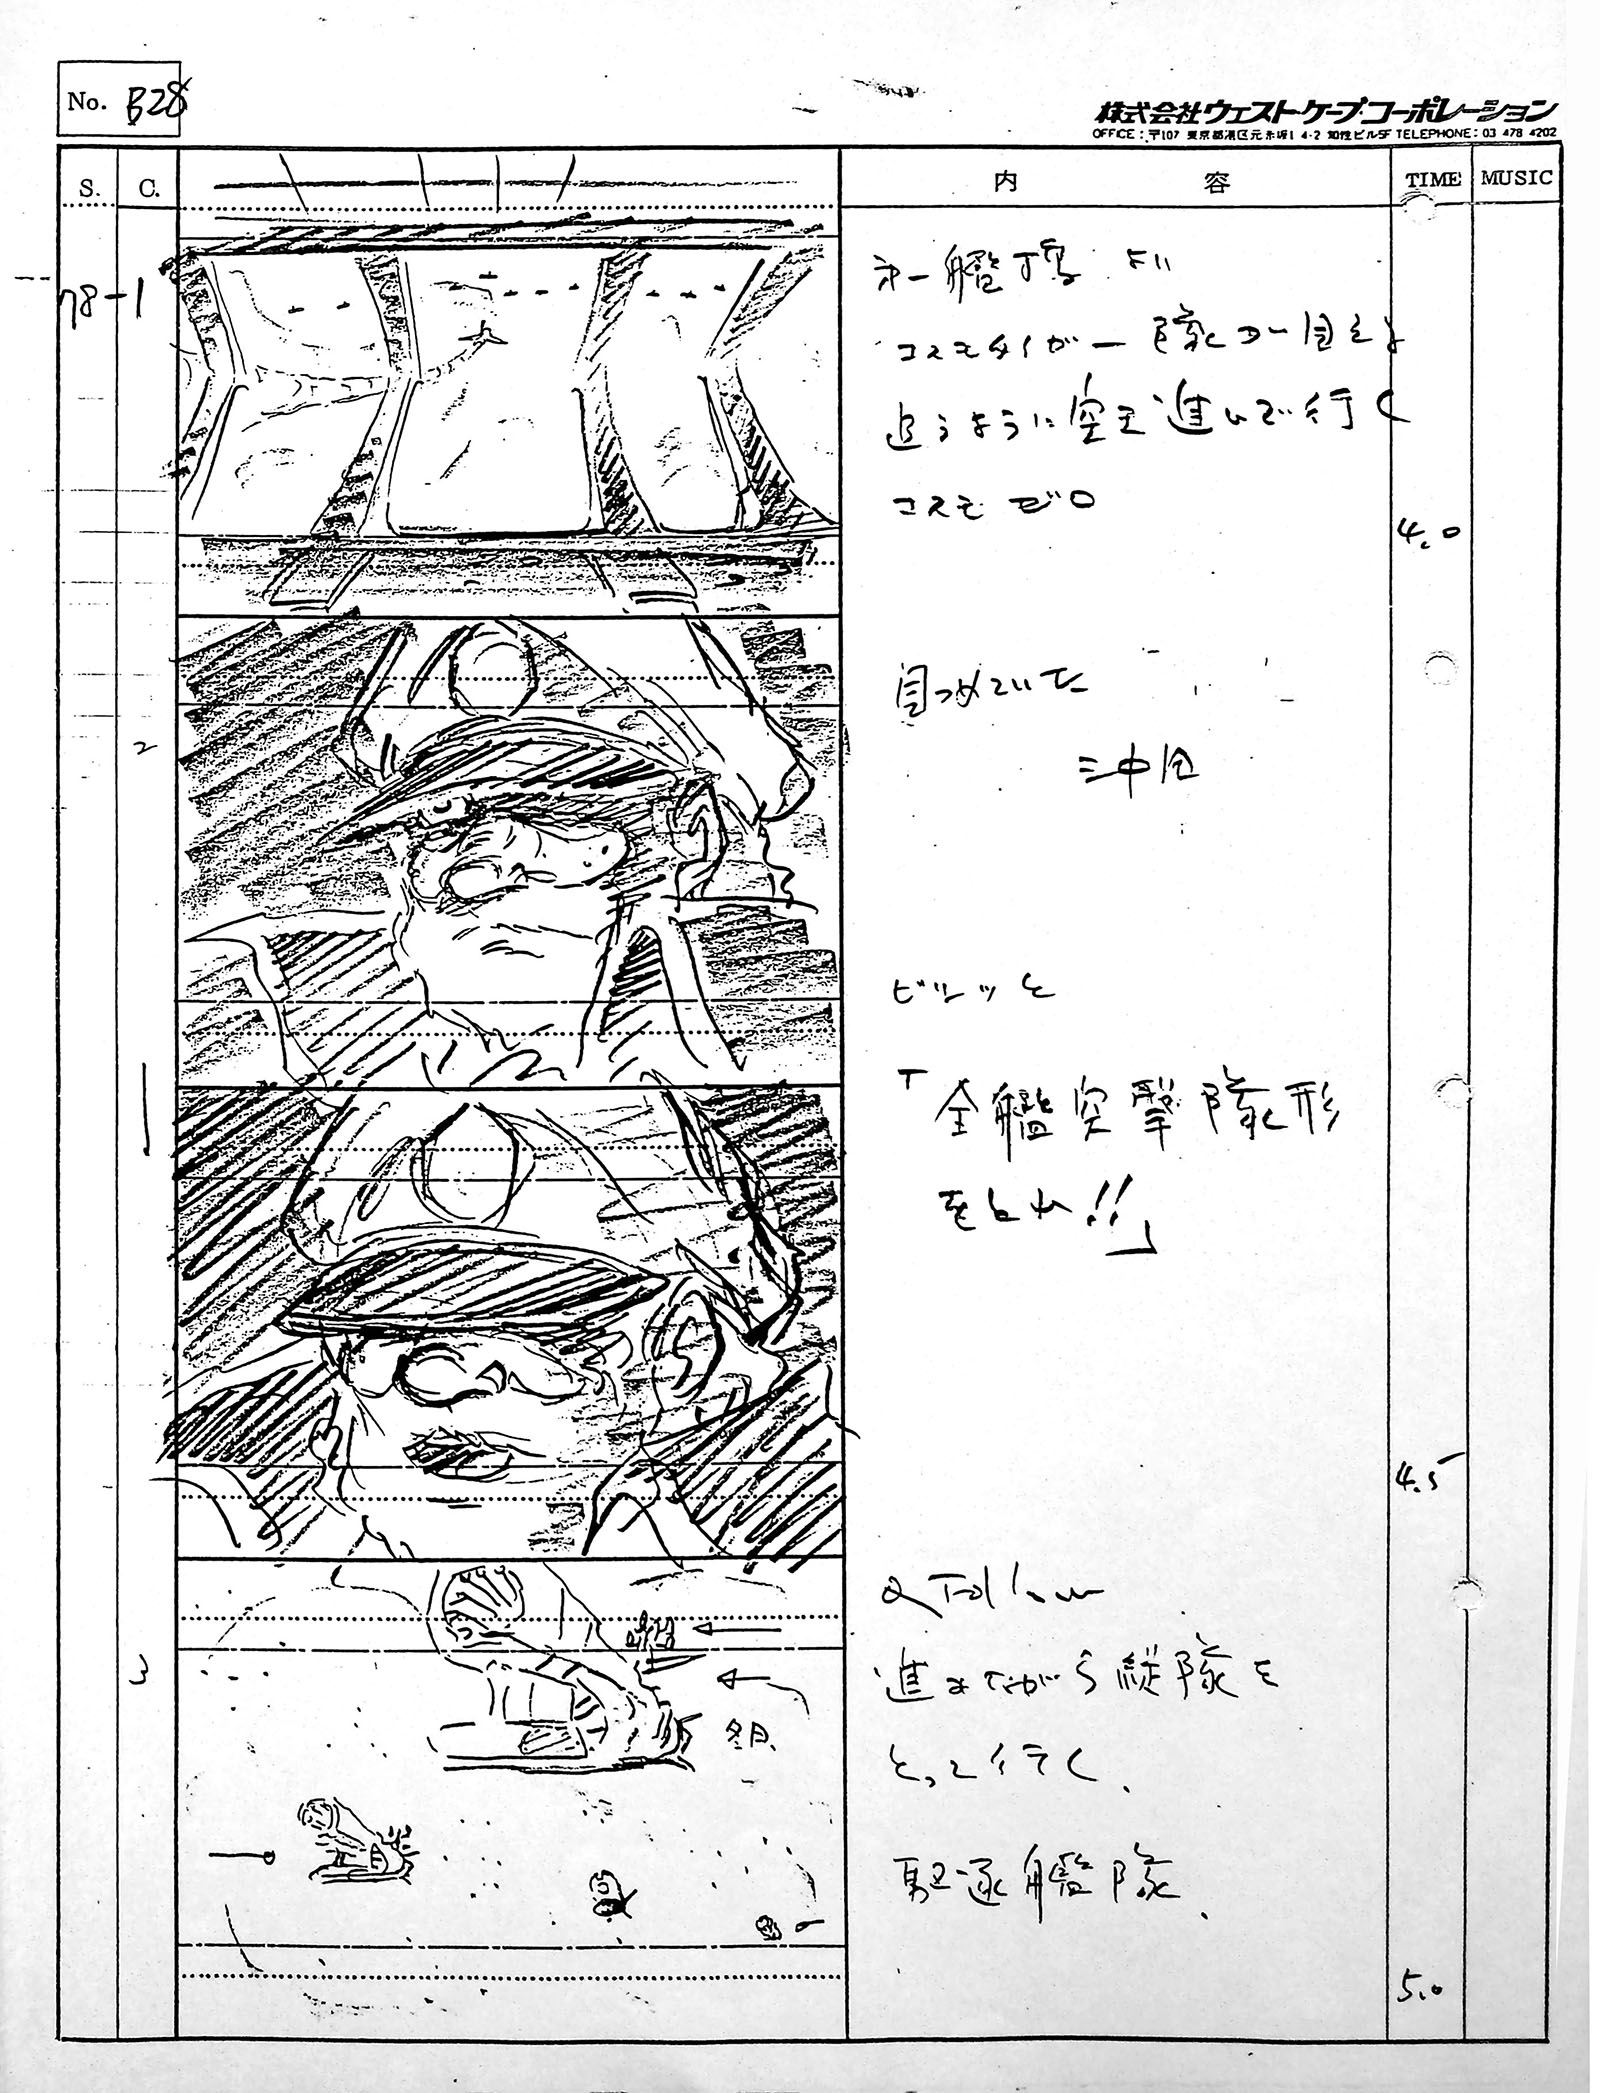 No. B28
株式会社ウェスト・ケープ・コーポレーション
OFFICE：〒107 東京都港区元赤坂1 4-2 知性ビル5F TELEPHONE：03 478 4202
S. C. 内容 TIME MUSIC
78-1
オ一艦橋 より
コスモタイガー隊の
追うように空を進んで行く
コスモゼロ
4.0
2
目つめていた
沖田
ビシッと
「全艦突撃隊形
をとれ!!」
4.5
3
Follow
進みながら縦隊を
とって行く.
冬月.
駆逐艦隊.
5.0